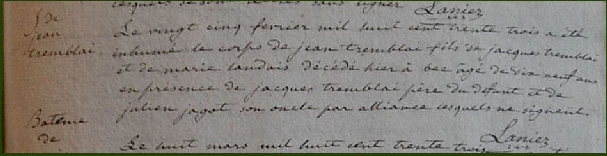 lesquels se son
Lanier
S. de
jean
tremblai
Le vingt cinq fevrier mil huit cent trente trois a été
inhumé le corps de jean tremblai fils de jacques tremblai
et de marie landais décédé hier à bec âgé de dix neuf ans
en presence de jacques tremblai père du défunt et de
julien jagot son oncle par alliance lesquels ne signent.
Lanier
Bateme
de
Le huit mars mil huit cent trente trois